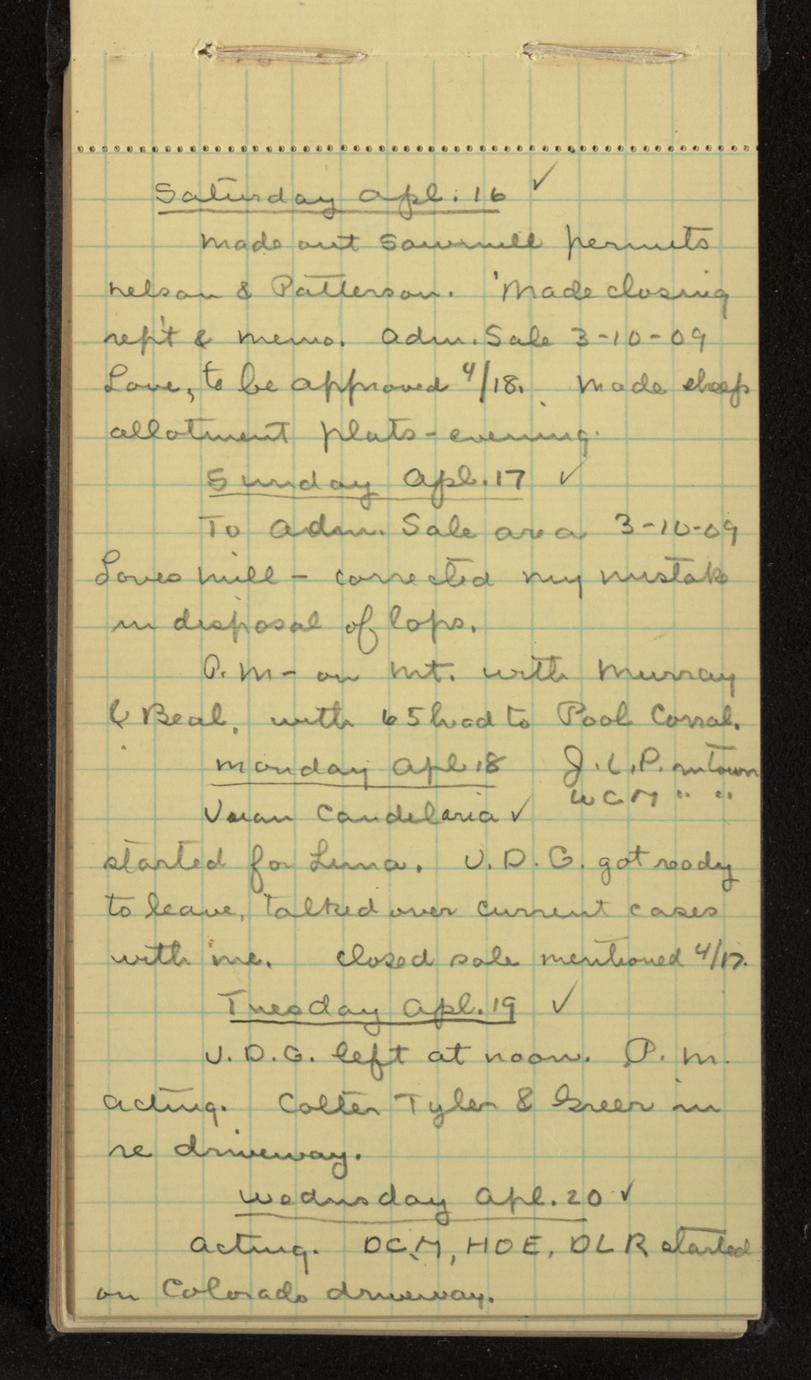 Saturday Apl. 16 ✓
Made out Sawmill permits
Nelson & Patterson. Made closing
rep't & memo. Adm. Sale 3-10-09
Love, to be approved 4/18. Made sheep
allotment plats - evening.
Sunday Apl. 17 ✓
To Adm. Sale area 3-10-09
Loves mill - corrected my mistake
in disposal of lops.
P.M - on Mt. with Murray
& Beal, with 65 head to Pool Corral.
Monday Apl 18 J.L.P. in town
WCM " "
Candelaria ✓
started for Luna. J.D.G. got ready
to leave, talked over current cases
with me. Closed sale mentioned 4/17.
Tuesday Apl. 19 ✓
J.D.G. left at noon. P.M.
acting. Colter Tyler & Greer in
re driveway.
Wednsday Apl. 20 ✓
Acting. DCM, HOE, DLR started
on Colorado driveway.